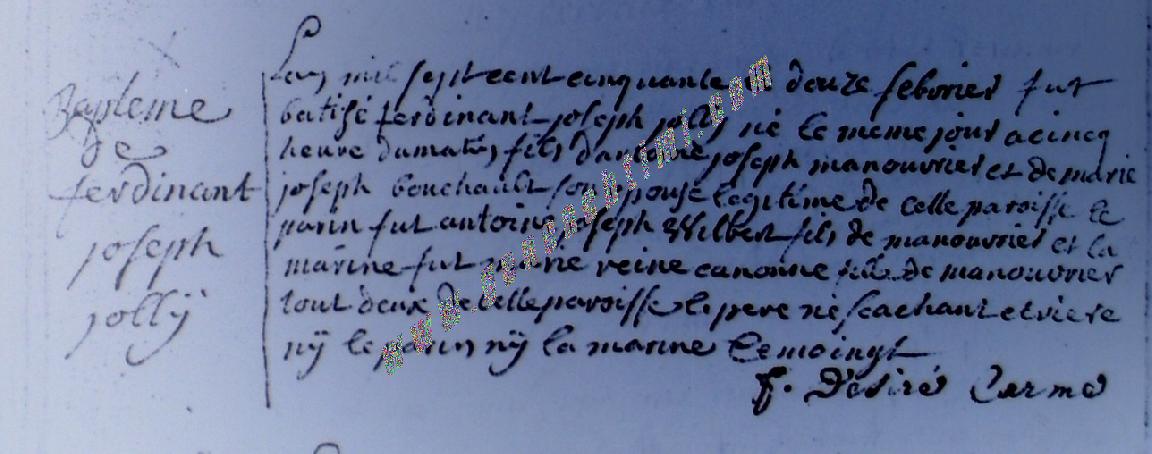 Bapteme
de
ferdinant
joseph
jollÿ
Lan mil sept cent cinquante douze febvrier fut
batisé ferdinant joseph jolly né le meme jour a cincq
heure du matin fils dantoine joseph manouvrier et de marie
joseph bouchault son epouse legitime de celle paroisse le
parin fut antoine joseph Wilbert fils de manouvrier et la
marine fut marie reine canonne fille de manouvrier
tout deux de celle paroisse le pere ne scachant escriere
nÿ le parin nÿ la marine
f. Désiré Carme